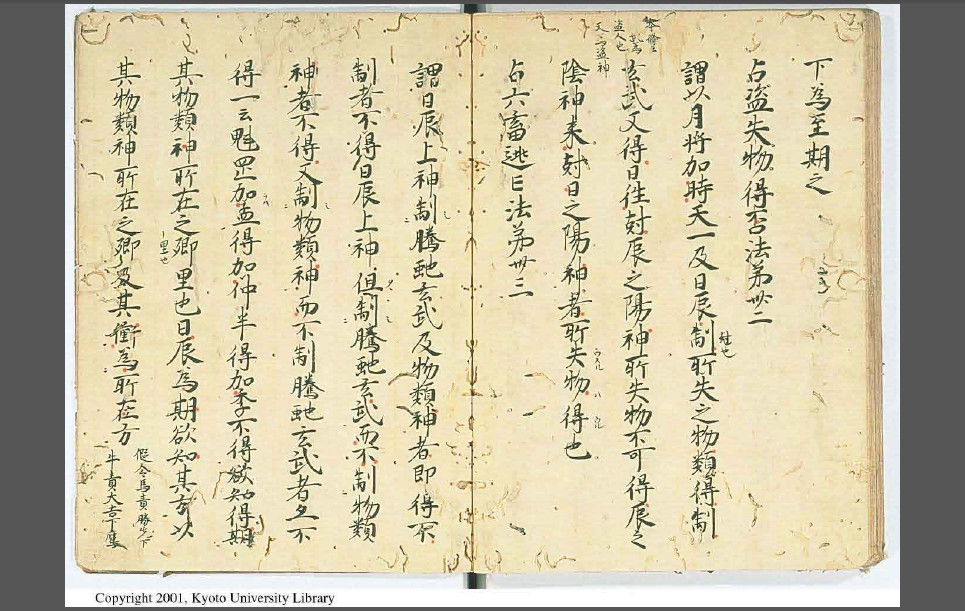 下為至期之
占盗失物得否法第卅二
謂以月将加時天一及日辰制所失之物類得制
尅也
玄武又得日往尅辰之陽神所失物不可得辰之
盗人也
又云盗神
陰神来尅日之陽神者所失物得也
占六畜逃亡法第卅三
謂日辰上神制騰虵玄武及物類神者即得不
制者不得日辰上神但制騰虵玄武而不制物類
神者不得又制物類神而不制騰虵玄武者亦不
得一云魁罡加孟得加仲半得加季不得欲知得期
其物類神所在之郷里也日辰為期欲知其方以
里也
其物類神所在之郷及其衝為所在方
假令馬責勝先下
牛責大吉下
Copyright 2001, Kyoto University Library